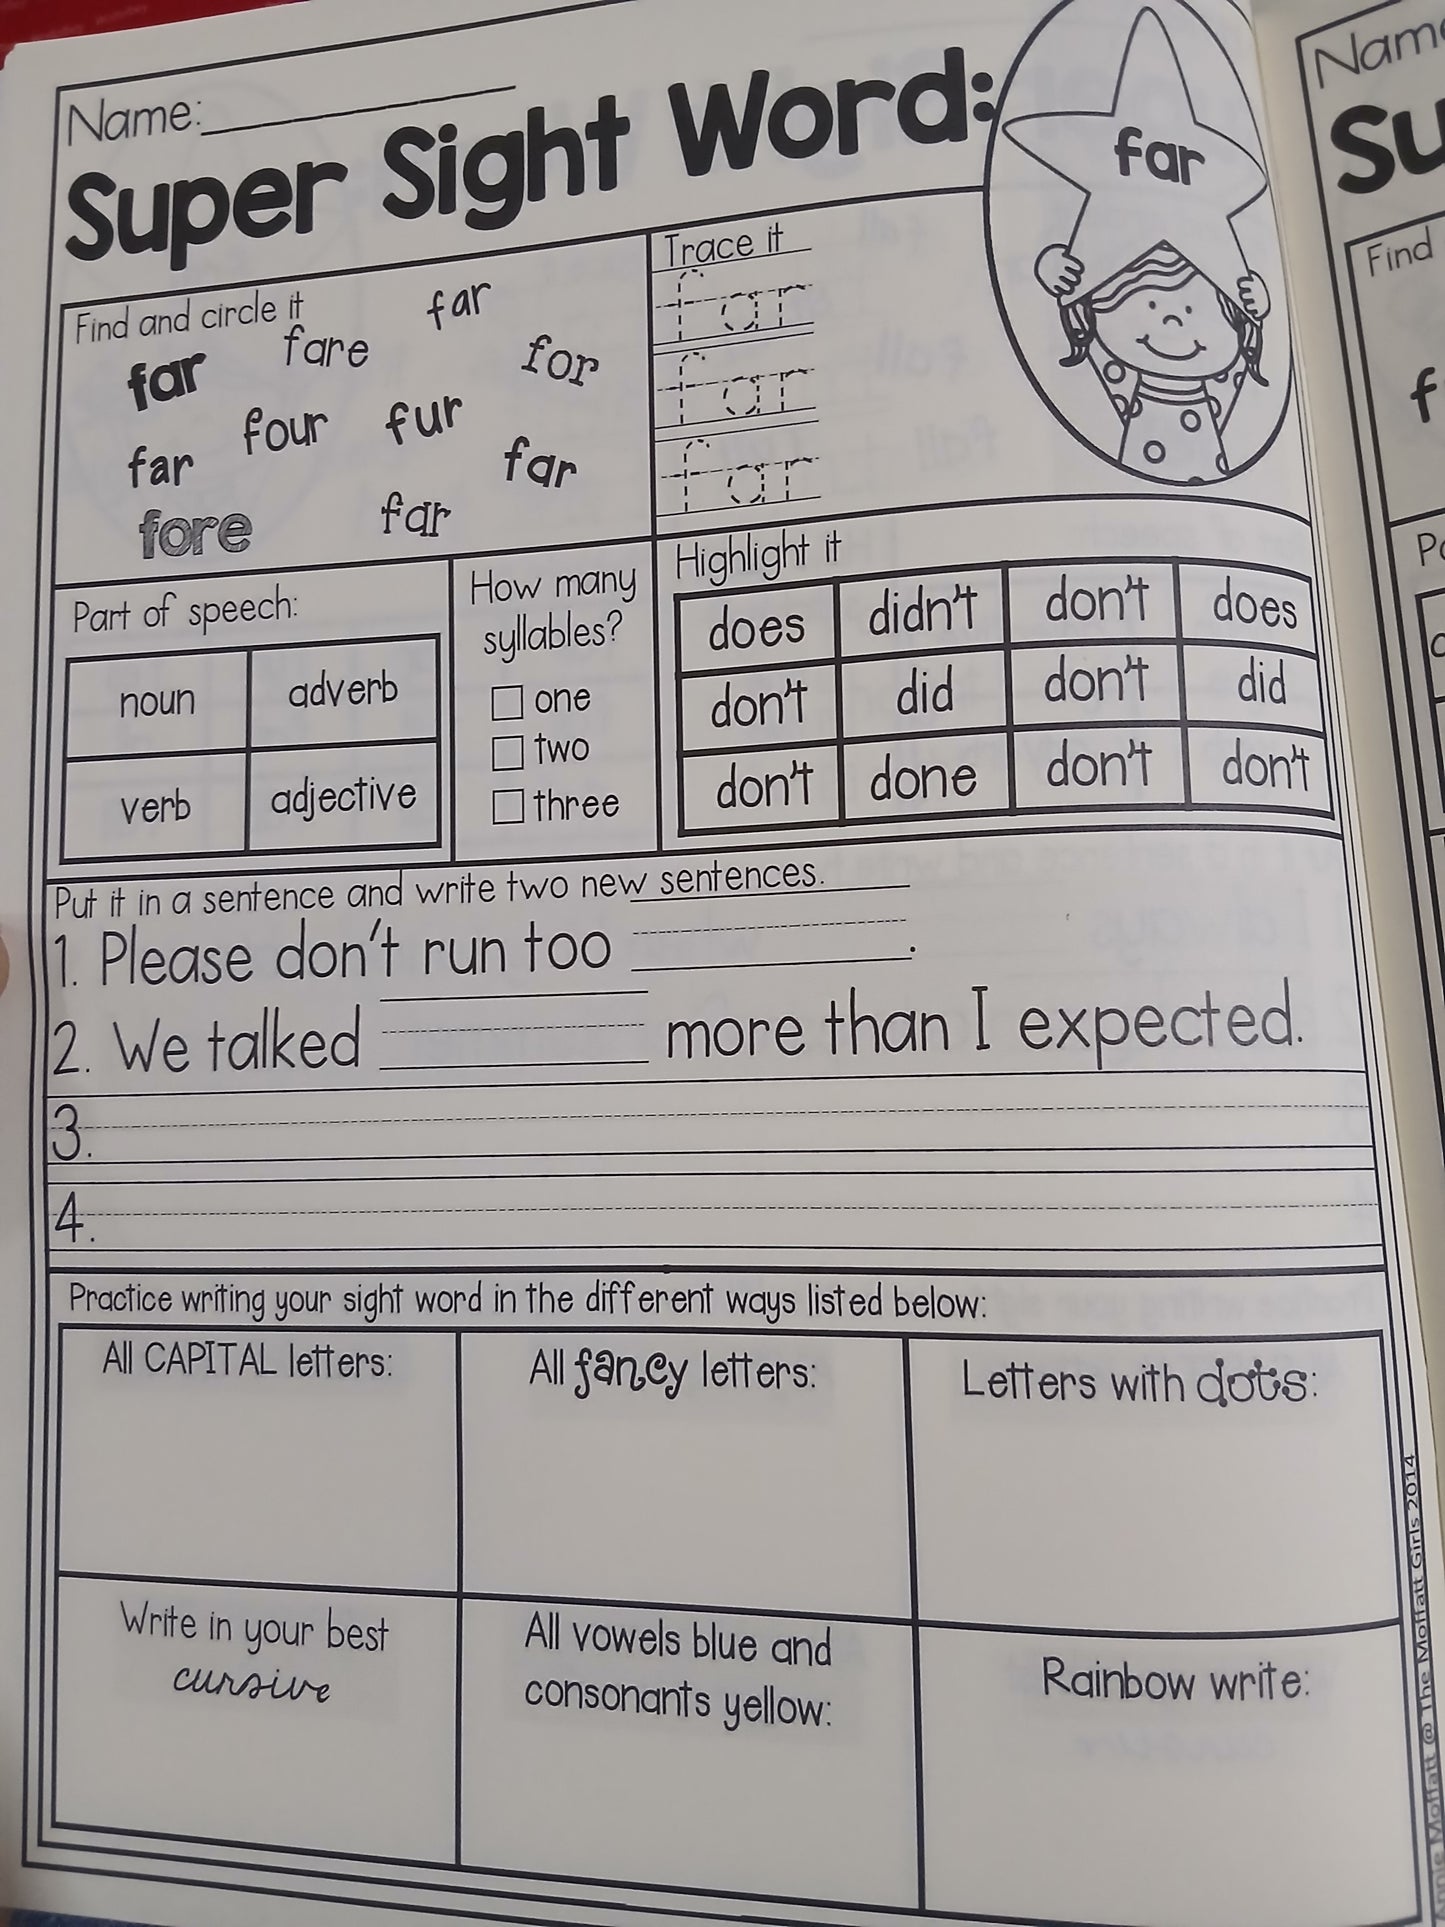 Name:
Super Sight Word:
far
Find and circle it
far
far
fare
for
four
fur
far
far
fore
far
Trace it
far
far
far
Part of speech:
noun adverb
verb adjective
How many
syllables?
one
two
three
Highlight it
does didn't don't does
don't did don't did
don't done don't don't
Put it in a sentence and write two new sentences.
1. Please don't run too .
2. We talked more than I expected.
3.
4.
Practice writing your sight word in the different ways listed below:
All CAPITAL letters:
All fancy letters:
Letters with dots:
Write in your best
cursive
All vowels blue and
consonants yellow:
Rainbow write:
Moffatt @ The Moffatt Girls 2014
Find